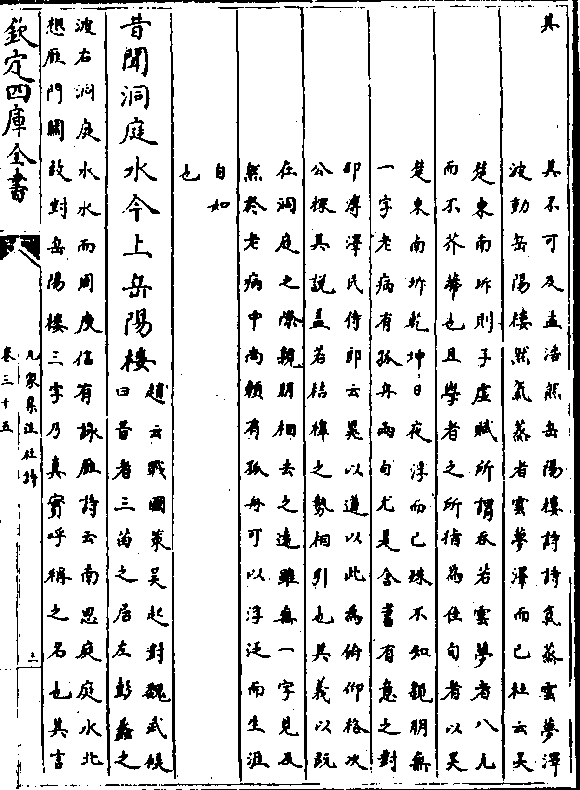 其
其不可及孟浩然岳陽樓詩詩氣蒸雲夢澤
波動岳陽樓然氣蒸者雲夢澤而已杜云吴
楚東南坼則子虚賦所謂吞若雲夢者八九
而不芥蔕也且學者之所指為佳句者以吴
楚東南坼乾坤日夜浮而已殊不知親朋無
一字老病有孤舟兩句尤是含蓄有意之對
即漕澤民侍郎云晁以道以此為俯仰格次
公推其說盖若桔橰之勢相引也其義以既
在洞庭之際親朋相去之遠雖無一字見及
然於老病中尚賴有孤舟可以浮泛而生涯
自如
也
昔聞洞庭水今上岳陽樓
趙云戰國策吴起對魏武侯
曰昔者三苗之居左彭蠡之
波右洞庭水水而周庾信有詠雁詩云南思庭庭水北
想雁門關故對岳陽樓三字乃真實呼稱之名也其言
欽定四庫全書
九家集注杜詩
卷三十五